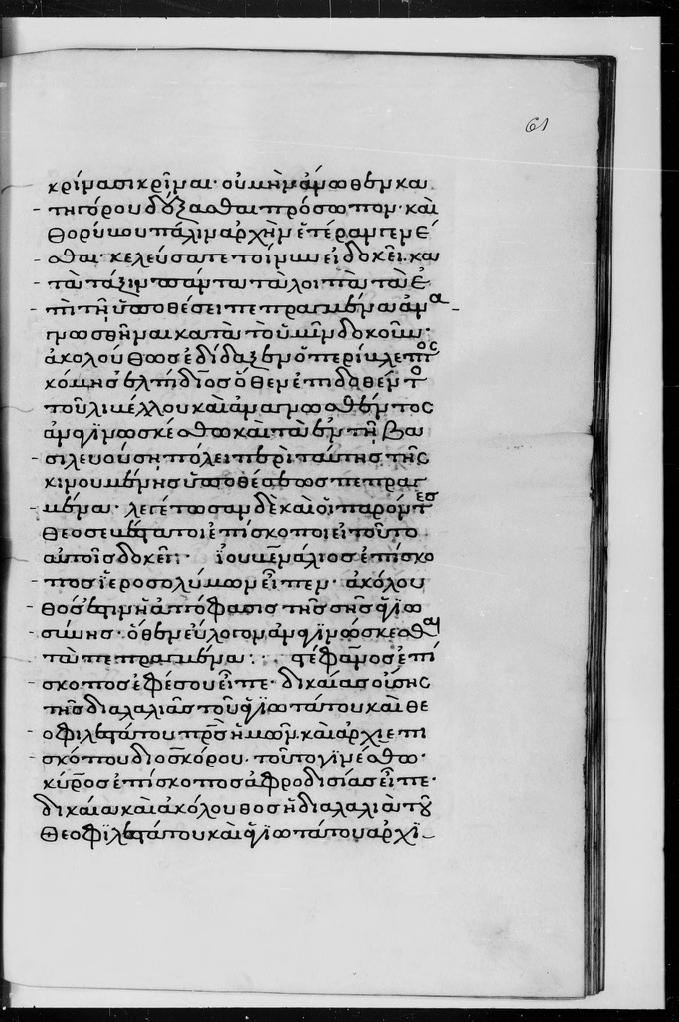 61
κρίμασι κρῖναι· οὐ μὴν ἄνωθεν κα
τηγόρου δόξασθαι πρόσωπον· καὶ
θορύβου πάλιν ἀρχὴν ἑτέραν γενέ
σθαι· κελεύσατε τοίνυν εἰ δοκεῖ. κα
τὰ τάξιν πάντα τὰ λοιπὰ τὰ ἐ
πὶ τῇ ὑποθέσει πεπραγμένα ἀνα
γνωσθῆναι κατὰ τὸ ὑμῖν δοκοῦν·
ἀκολούθως ἐδίδαξεν ὁ περίβλεπτος
κόμης ἐλπίδιος ὅθεν ἐπιδοθέντο
τοῦ λιβέλλου καὶ ἀναγνωσθέντος
ἀναγινωσκέσθω καὶ τὰ ἐν τῇ βα
σιλευούσῃ πόλει περὶ ταύτης τῆς
κινουμένης ὑποθέσεως πεπραγ
μένα· λεγέτωσαν δὲ καὶ οἱ παρόντες
θεοσεβέστατοι ἐπίσκοποι εἰ τοῦτο
αὐτοῖς δοκεῖ: ἰουβενάλιος ἐπίσκο
πος ἱεροσολύμων εἶπεν· ἀκόλου
θός ἐστιν ἡ ἀπόφασις τῆς σῆς ἁγιω
σύνης· ὅθεν εὔλογον ἀναγινώσκεσθαι
τὰ πεπραγμένα: στέφανος ἐπί
σκοπος ἐφέσου εἶπε· δικαίας οὔσης
τῆς διαλαλιᾶς τοῦ ἁγιωτάτου καὶ θε
οφιλεστάτου πρς ἡμῶν καὶ ἀρχιεπι
σκόπου διοσκόρου. τοῦτο γινέσθω·
κύρος ἐπίσκοπος ἀφροδισίας εἶπε·
δικαία καὶ ἀκόλουθος ἡ διαλαλιὰ τοῦ
θεοφιλεστάτου καὶ ἁγιωτάτου ἀρχι